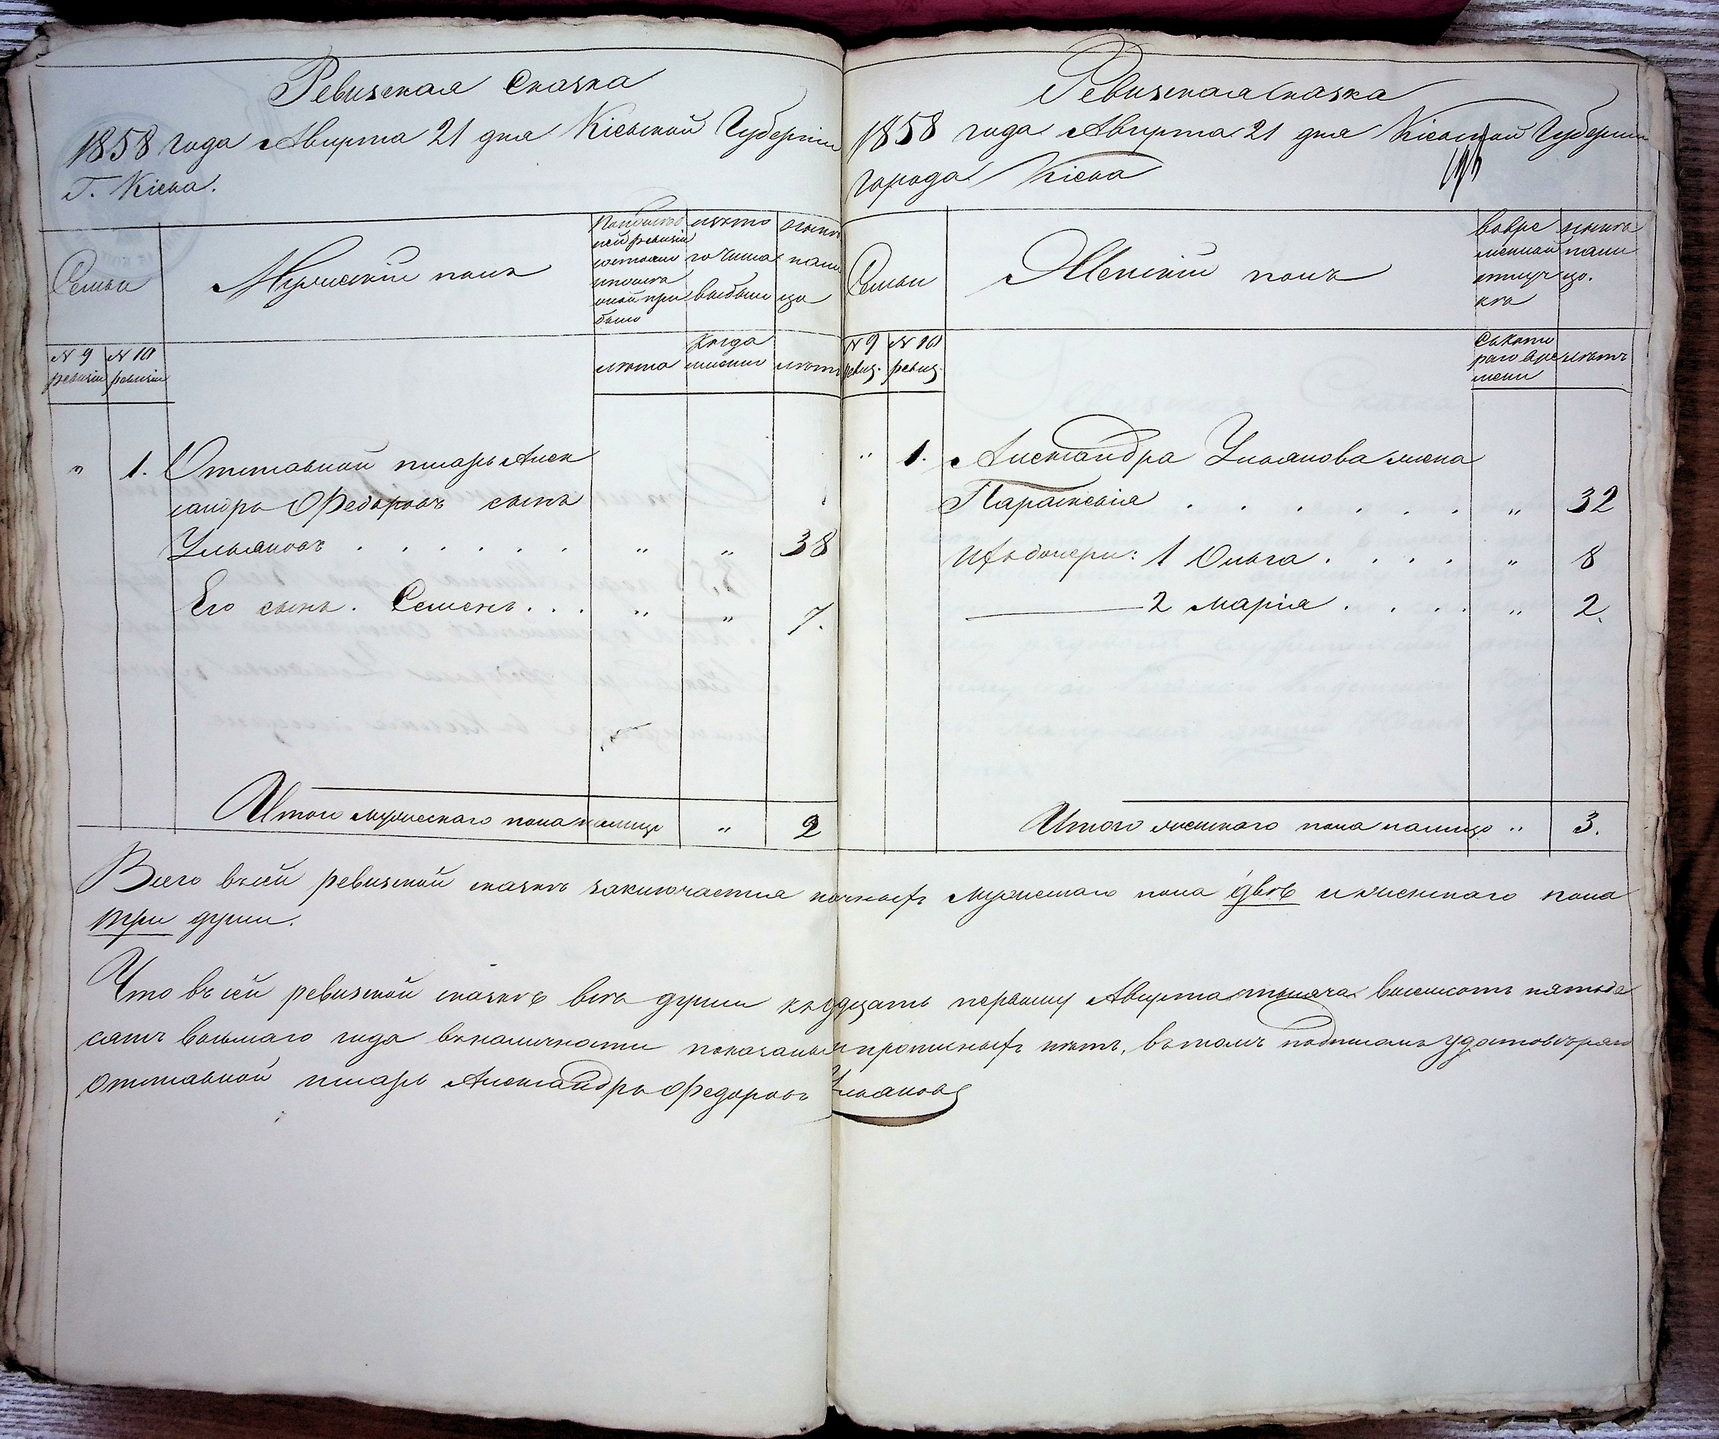 Ревизская Сказка
1858 года Августа 21 дня Кіевской Губерніи
Г. Кіева.
Семьи
Мужеский полъ
По последней ревизіи состояло и после оной прибыло
изъ того числа выбыло
ныне на лицо
№ 9 ревизіи
№ 10 ревизіи
лета
когда именно
лета
" 1. Отставной писарь Алек
сандръ Федоровъ сынъ
Ульяновъ . . . . . . " " 38
Его сынъ. Семенъ. . . " " 7.
Итого мужескаго пола на лицо " 2
Ревизская Сказка
1858 года Августа 21 дня Кіевской Губерніи
города Кіева
Семьи
Женскій полъ
во временной отлучке
ныне на лицо.
№ 9 ревиз.
№ 10 ревиз.
Съ котораго времени
летъ
" 1. Александра Ульянова жена
Параскевія . . . . . . . " 32
Ихъ дочери: 1 Ольга . . . . " 8
2 Марія . . . . " 2.
Итого женскаго пола на лицо " 3.
Всего в сей ревизской сказке заключается наличныхъ мужескаго пола две и женскаго пола
три души.
Что въ сей ревизской сказке все души къ двадцать первому Августа тысяча восемсотъ пятьде
сятъ восьмаго года в наличности показаны и прописныхъ нетъ, в томъ подписомъ удостоверяю
отставной писарь Александръ Федоровъ Ульяновъ